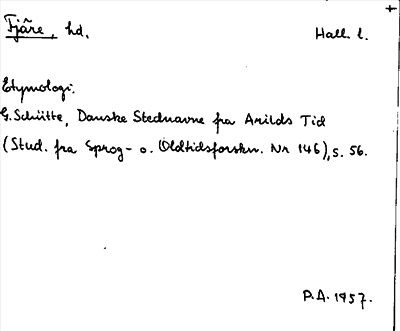 Fjäre, hd. Hall. l.
Etymologi.
G. Schütte, Danske Stednavne fra Arilds Tid
(Stud. fra Sprog- o. Oldtidsforskn. Nr 146), s. 56.
P.A. 1957.